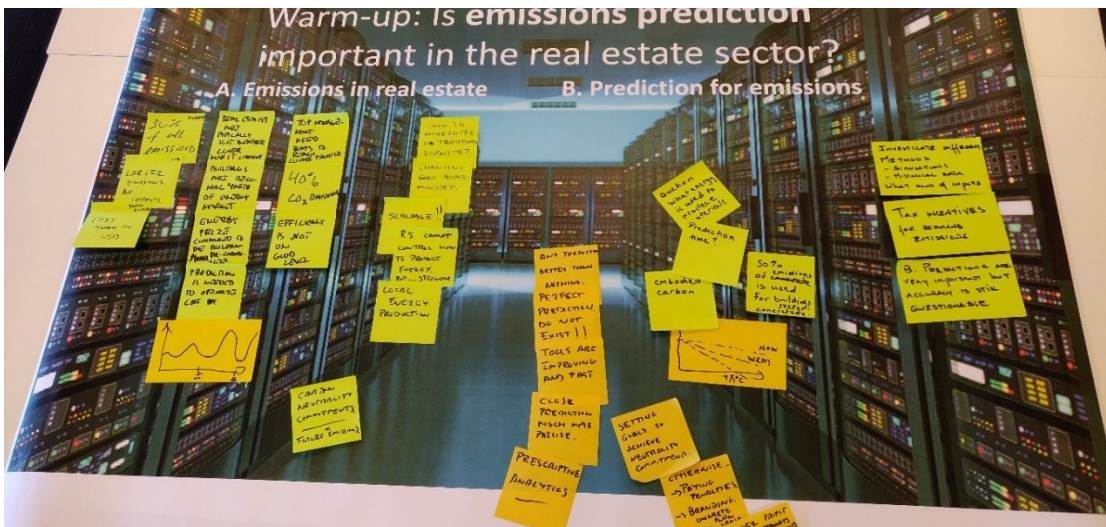 Warm-up: Is emissions prediction
important in the real estate sector?
A. Emissions in real estate
B. Prediction for emissions
30%
of all
emissions
LARGER
EMISSIONS
REAL ESTATES
ARE
TYPICALLY
BUILDINGS
OF ENERGY
MARKET
ENERGY
PRIZE
COMPARED TO
PREDICTION
IS NEEDED
TO OPTIMIZE
TOP MANAGE-
MENT
NEED
WAYS TO
40%
CO2 EMISSIONS
EFFICIENCY
IS NOT
ON
GOOD
LEVEL
CARBON
NEUTRALITY
COMMITMENTS
FUTURE EMISSIONS
MINDSET.
SCALABLE!!
RS CANNOT
CONTROL HOW
TO PRODUCE
ENERGY.
LOCAL
ENERGY
PRODUCTION
BETTER THAN
NOTHING.
PERFECT
PREDICTION
DO NOT
EXIST!!
TOOLS ARE
IMPROVING
AND FAST
CLOSE
PREDICTION
MUCH MORE
PRECISE.
PRESCRIPTIVE
ANALYTICS
what energy
is used to
produce
materials
Prediction
time?
embodied
carbon
50%
of emissions
of concrete
is used
for building
sector
NOW
1,5°C
SETTING
GOALS TO
ACHIEVE
NEUTRALITY
COMMITMENT.
OTHERWISE...
→ PAYING
PENALTIES.
→ BRANDING.
CONCRETE
PLAN
INVESTIGATE DIFFERENT
METHODS
- SIMULATIONS
- HISTORICAL DATA
WHAT KIND OF INPUTS
TAX INCENTIVES
for REDUCING
EMISSIONS
B. PREDICTIONS ARE
VERY IMPORTANT BUT
ACCURACY IS STILL
QUESTIONABLE